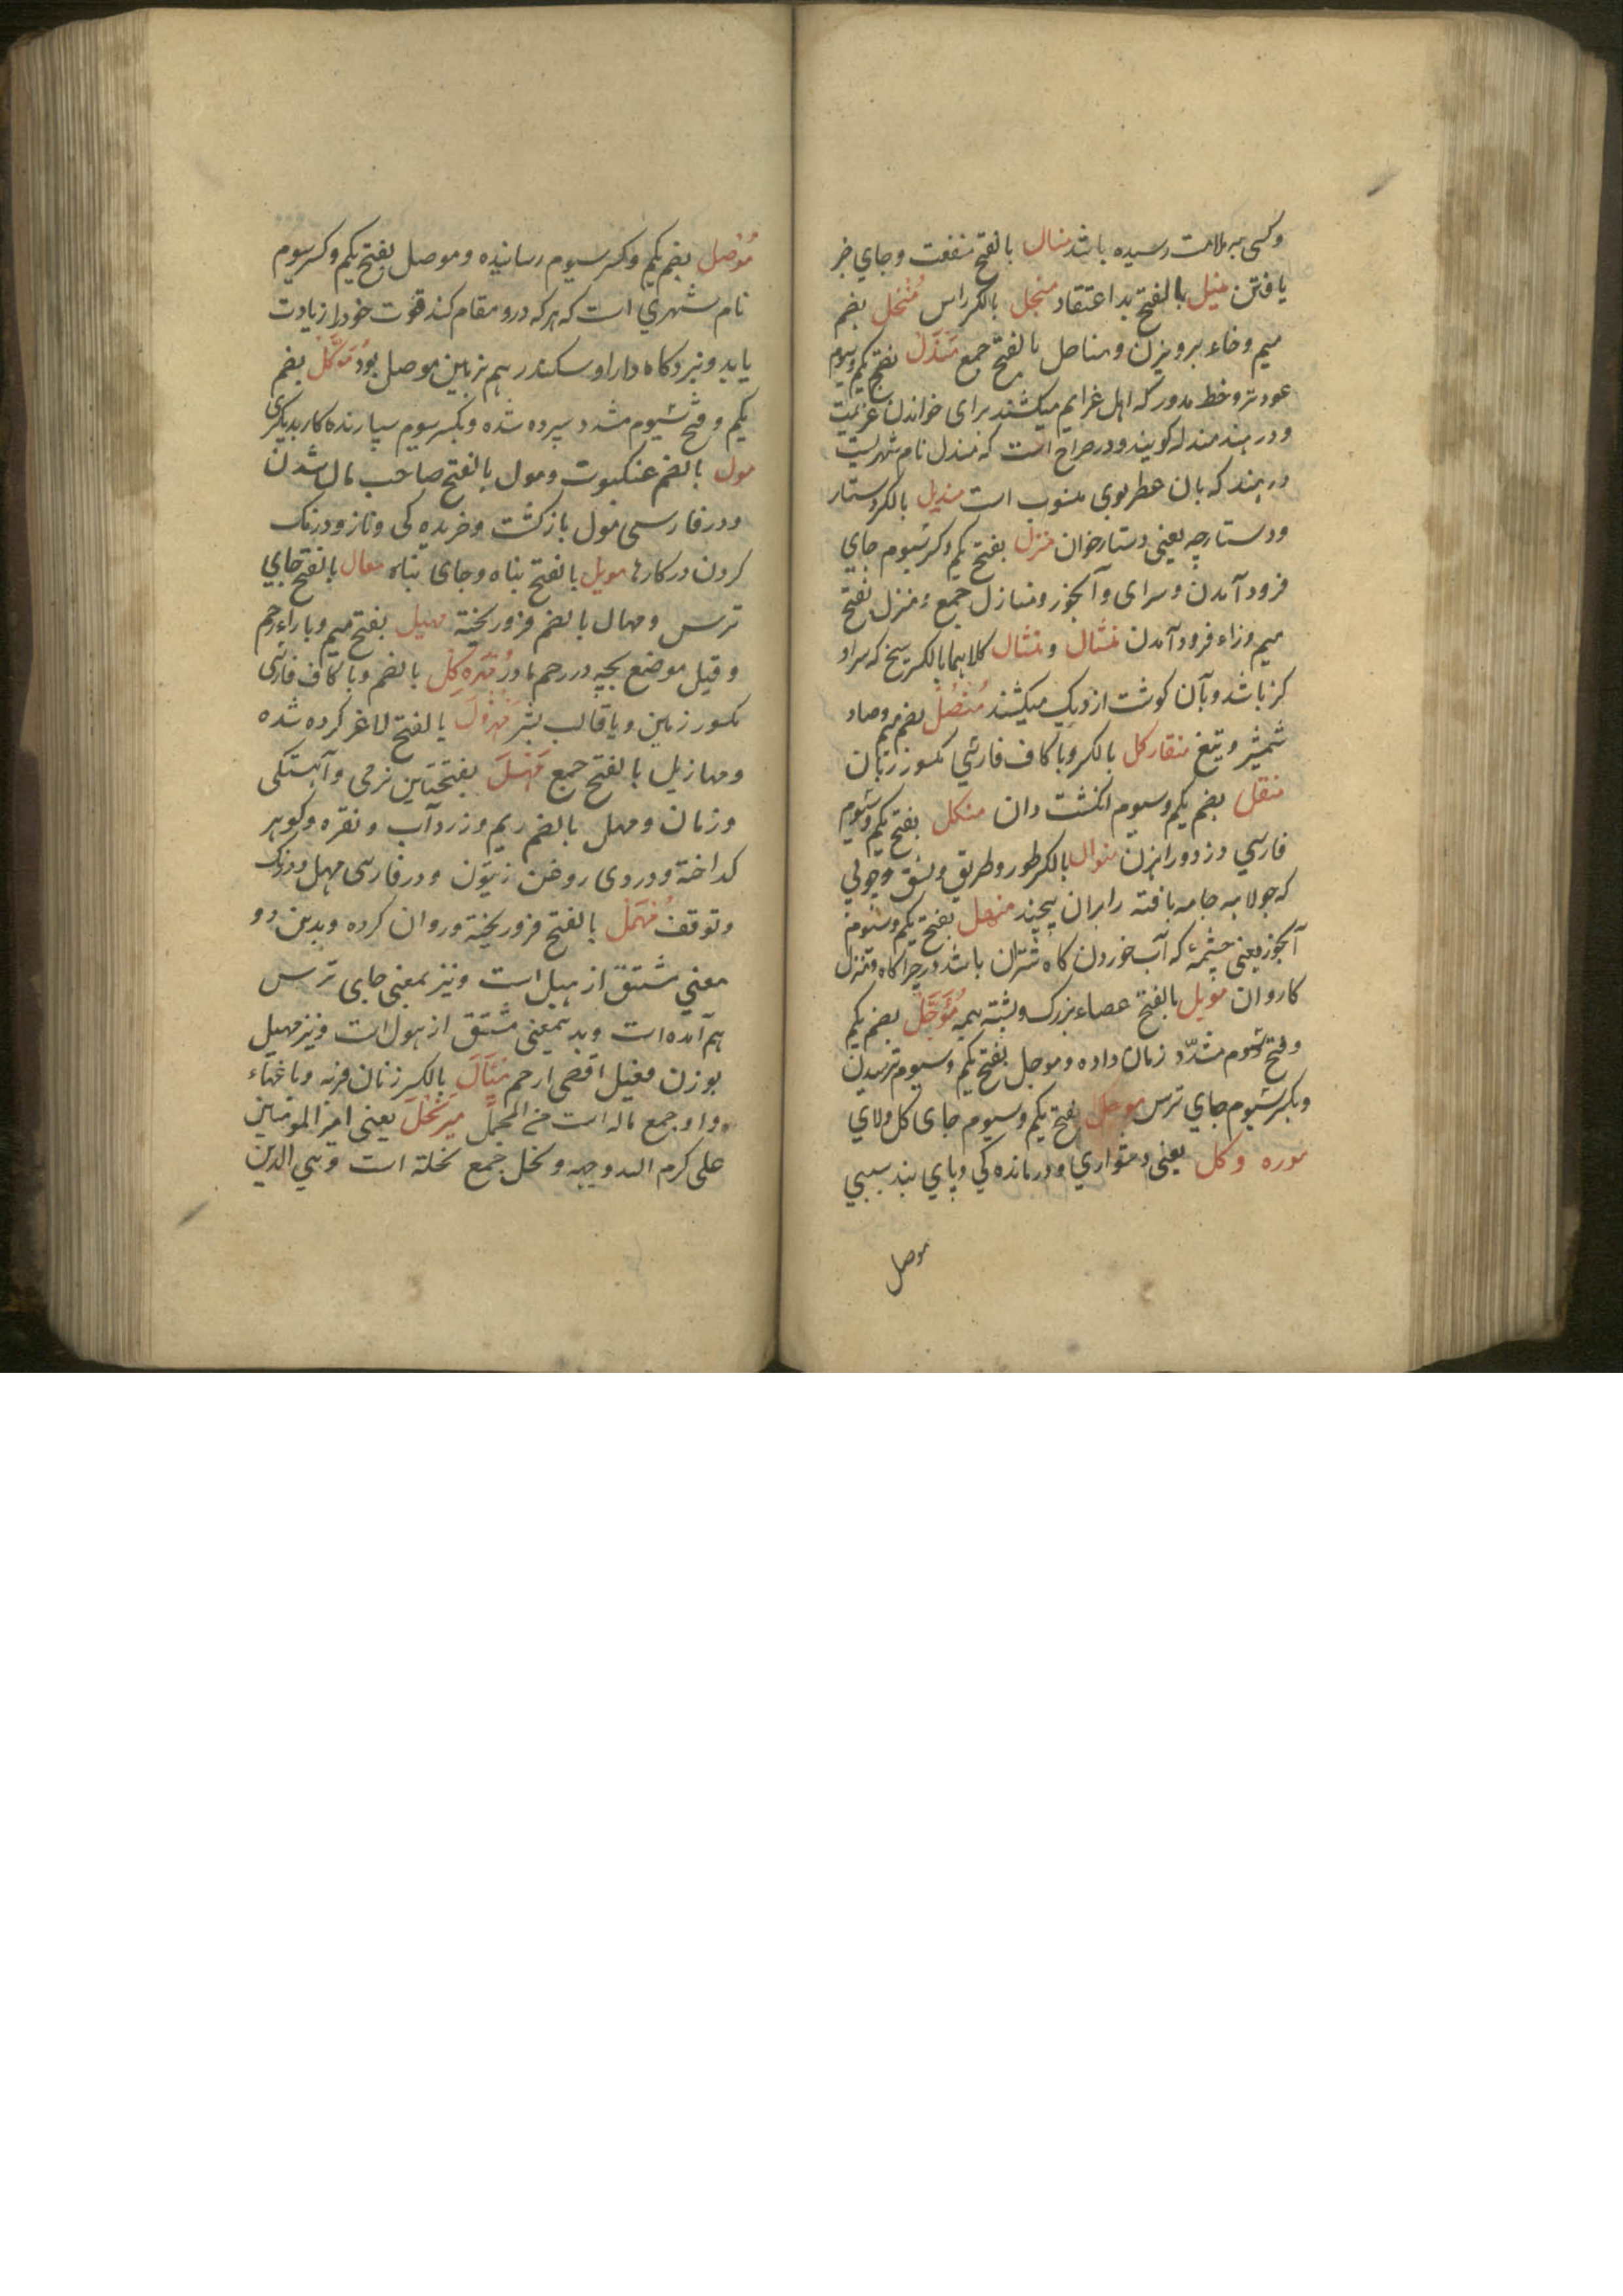 وکسی به ملامت رسیده باشد منال بالفتح منفعت و جاي خبر
یافتن منیل بالفتح بد اعتقاد منجل بالکسر داس مُنْخل بضم
میم و خاء پرویزن و مناخل بالفتح جمع مندل بفتح یکم و سیوم
عود تر و خط مدور که اهل غرایم میکشند برای خواندن عزیمت
و در هند مندله کویند و در صراح است که مندل نام شهریست
در هند که بان عطر بوی منسوب است مندیل بالکسر دستار
و دستارچه یعنی دستارخوان منزل بفتح یکم و کسر سیوم جاي
فرود آمدن و سرای و آبخور و منازل جمع و منزل بفتح
میم و زاء فرود آمدن منشال و منشال کلاهما بالکسر سیخ که سر او
کز باشد و بآن کوشت از دیک میکشند مُنْصُل بضم میم و صاد
شمشیر و تیغ منقار کل بالکسر و با کاف فارسي مکسور زبان
منقل بضم یکم و سیوم انکشت دان منکل بفتح یکم و سیوم
فارسي دزد و راهزن منوال بالکسر طور و طریق و نسق و چوبي
که جولاهه جامه بافته را بران پیچند منهل بفتح یکم و سیوم
آبخور یعنی چشمۀ که آب خوردن کاه شتران باشد در چراکاه و منزل
کاروان مویل بالفتح عصاء بزرک و پشته هیمه مُؤَجَّل بضم یکم
و فتح سیوم مشدّد زمان داده و موجل بفتح یکم و سیوم ترسیدن
و بکسر سیوم جاي ترس موحل بفتح یکم و سیوم جاي کل و لاي
موره و کل یعنی دشواري و درمانده کي و پاي بند سببي
موصل
مُوْصل بضم یکم و کسر سیوم رسانیده و موصل بفتح یکم و کسر سیوم
نام شهري است که هر که درو مقام کند قوت خود را زیادت
یابد و نبردکاه دارا و سکندر هم بزمین موصل بود مُوَکَّل بضم
یکم و فتح سیوم مشدد سپرده شده و بکسر سیوم سپارنده کار بدیکری
مول بالضم عنکبوت و مول بالفتح صاحب مال شدن
و در فارسی مول بازکشت و خزیده کی و ناز و درنک
کردن در کارها مویل بالفتح پناه و جای پناه مهال بالفتح جاي
ترس و مهال بالضم فرو ریخته مهبل بفتح میم و باراء رحم
و قیل موضع بچه در رحم مادر مُهره کِل بالضم و با کاف فارسی
مکسور زمین و یا قالب بشر مَهْزُول بالفتح لاغر کرده شده
و مهازیل بالفتح جمع مَهَل بفتحتین نرمی و آهستکی
و زمان و مهل بالضم ریم و زرد آب و نقره و کوهر
کداخته و دردی روغن زیتون و در فارسی مهل درنک
و توقف مُهْمَل بالفتح فرو ریخته و روان کرده و بدین دو
معني مشتق از هیل است و نیز بمعنی جای ترس
هم آمده است و بدینمعنی مشتق از هول است و نیز مهیل
بوزن مفیل اقصی ارحم مِیَال بالکسر زنان فربه و باغهاء
و او جمع ماله است من المجمل میرنَخَل یعنی امیر المومنین
علی کرم الله وجهه و نخل جمع نخلة است و هي الدبن